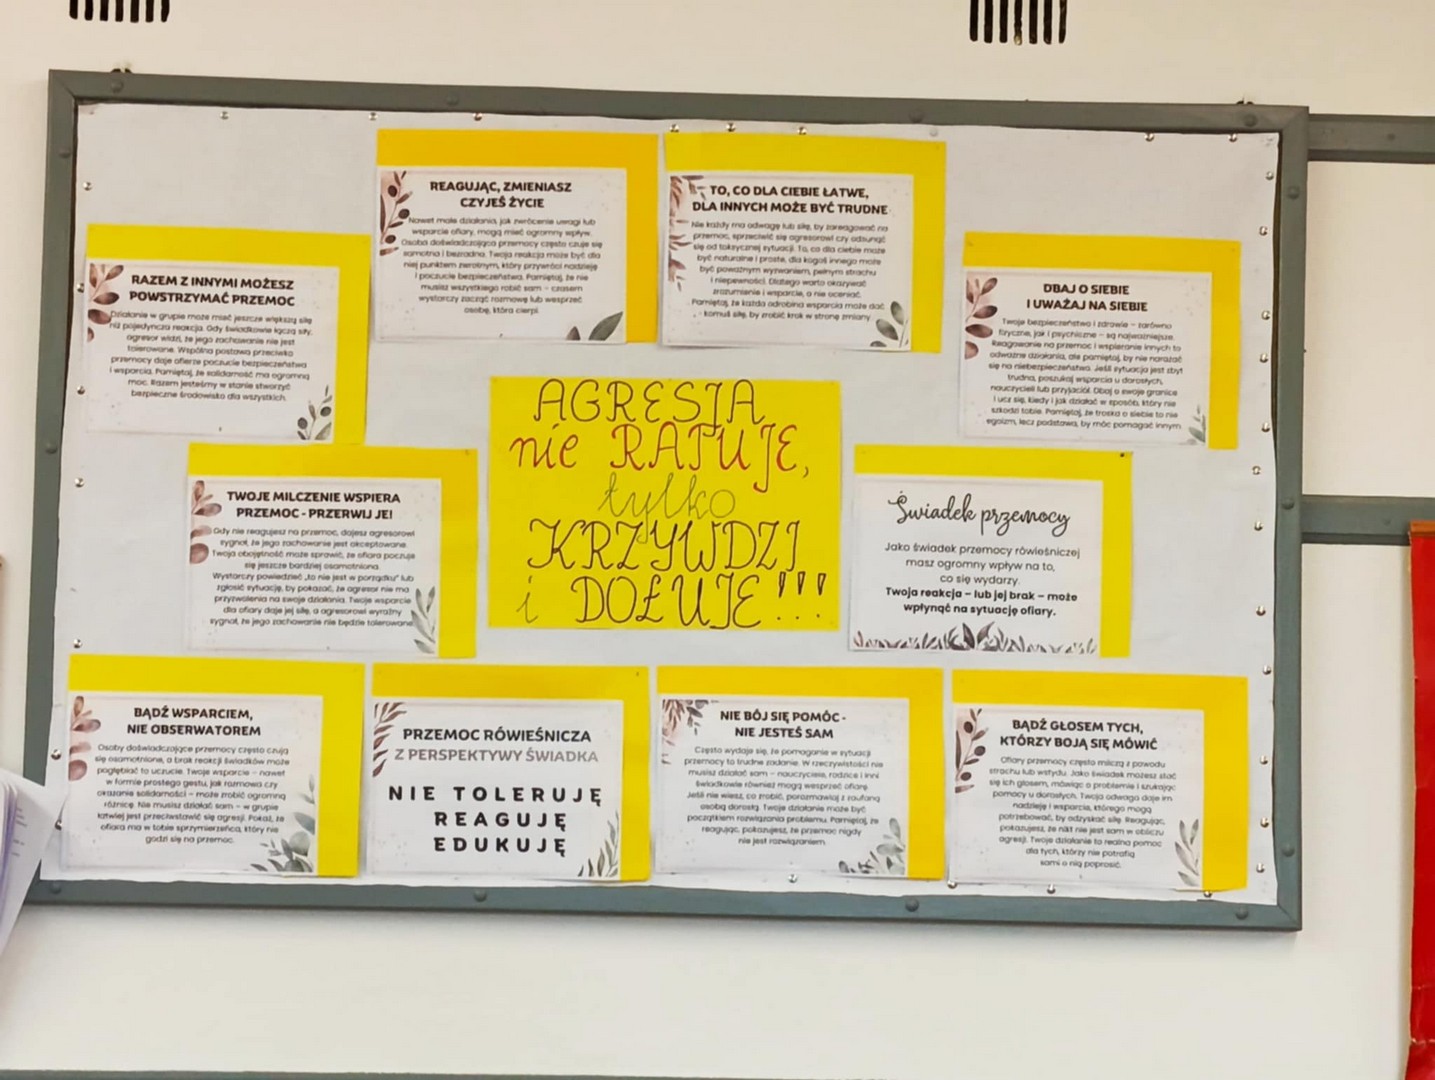 REAGUJĄC, ZMIENIASZ
CZYJEŚ ŻYCIE
Nawet małe działania, jak zwrócenie uwagi lub
wsparcie ofiary, mogą mieć ogromny wpływ.
Osoba doświadczająca przemocy często czuje się
samotna i bezradna. Twoja reakcja może być dla
niej punktem zwrotnym, który przywróci nadzieję
i poczucie bezpieczeństwa. Pamiętaj, że nie
musisz wszystkiego robić sam - czasem
wystarczy zacząć rozmowę lub wesprzeć
osobę, która cierpi.
TO, CO DLA CIEBIE ŁATWE,
DLA INNYCH MOŻE BYĆ TRUDNE
Nie każdy ma odwagę lub siłę, by zareagować na
przemoc, sprzeciwić się agresorowi czy odsunąć
się od toksycznej sytuacji. To, co dla ciebie może
być naturalne i proste, dla kogoś innego może
być poważnym wyzwaniem, pełnym strachu
i niepewności. Dlatego warto okazywać
zrozumienie i wsparcie, a nie oceniać.
Pamiętaj, że każda odrobina wsparcia może dać
komuś siłę, by zrobić krok w stronę zmiany
RAZEM Z INNYMI MOŻESZ
POWSTRZYMAĆ PRZEMOC
Działanie w grupie może mieć jeszcze większą siłę
niż pojedyncza reakcja. Gdy świadkowie łączą siły,
agresor widzi, że jego zachowanie nie jest
tolerowane. Wspólna postawa przeciwko
przemocy daje ofierze poczucie bezpieczeństwa
i wsparcia. Pamiętaj, że solidarność ma ogromną
moc. Razem jesteśmy w stanie stworzyć
bezpieczne środowisko dla wszystkich.
DBAJ O SIEBIE
I UWAŻAJ NA SIEBIE
Twoje bezpieczeństwo i zdrowie – zarówno
fizyczne, jak i psychiczne – są najważniejsze.
Reagowanie na przemoc i wspieranie innych to
odważne działania, ale pamiętaj, by nie narażać
się na niebezpieczeństwo. Jeśli sytuacja jest zbyt
trudna, poszukaj wsparcia u dorosłych,
nauczycieli lub przyjaciół. Dbaj o swoje granice
i ucz się, kiedy i jak działać w sposób, który nie
szkodzi tobie. Pamiętaj, że troska o siebie to nie
egoizm, lecz podstawa, by móc pomagać innym
AGRESJA
nie RATUJE,
tylko
KRZYWDZI
i DOŁUJE!!!
TWOJE MILCZENIE WSPIERA
PRZEMOC - PRZERWIJ JE!
Gdy nie reagujesz na przemoc, dajesz agresorowi
sygnał, że jego zachowanie jest akceptowane.
Twoja obojętność może sprawić, że ofiara poczuje
się jeszcze bardziej osamotniona.
Wystarczy powiedzieć „to nie jest w porządku" lub
zgłosić sytuację, by pokazać, że agresor nie ma
przyzwolenia na swoje działania. Twoje wsparcie
dla ofiary daje jej siłę, a agresorowi wyraźny
sygnał, że jego zachowanie nie będzie tolerowane.
Świadek przemocy
Jako świadek przemocy rówieśniczej
masz ogromny wpływ na to,
co się wydarzy.
Twoja reakcja – lub jej brak – może
wpłynąć na sytuację ofiary.
BĄDŹ WSPARCIEM,
NIE OBSERWATOREM
Osoby doświadczające przemocy często czują
się osamotnione, a brak reakcji świadków może
pogłębiać to uczucie. Twoje wsparcie – nawet
w formie prostego gestu, jak rozmowa czy
okazanie solidarności – może zrobić ogromną
różnicę. Nie musisz działać sam – w grupie
łatwiej jest przeciwstawić się agresji. Pokaż, że
ofiara ma w tobie sprzymierzeńca, który nie
godzi się na przemoc.
PRZEMOC RÓWIEŚNICZA
Z PERSPEKTYWY ŚWIADKA
NIE TOLERUJĘ
REAGUJĘ
EDUKUJĘ
NIE BÓJ SIĘ POMÓC -
NIE JESTEŚ SAM
Często wydaje się, że pomaganie w sytuacji
przemocy to trudne zadanie. W rzeczywistości nie
musisz działać sam – nauczyciele, rodzice i inni
świadkowie również mogą wesprzeć ofiarę.
Jeśli nie wiesz, co zrobić, porozmawiaj z zaufaną
osobą dorosłą. Twoje działanie może być
początkiem rozwiązania problemu. Pamiętaj, że
reagując, pokazujesz, że przemoc nigdy
nie jest rozwiązaniem.
BĄDŹ GŁOSEM TYCH,
KTÓRZY BOJĄ SIĘ MÓWIĆ
Ofiary przemocy często milczą z powodu
strachu lub wstydu. Jako świadek możesz stać
się ich głosem, mówiąc o problemie i szukając
pomocy u dorosłych. Twoja odwaga daje im
nadzieję i wsparcie, którego mogą
potrzebować, by odzyskać siłę. Reagując,
pokazujesz, że nikt nie jest sam w obliczu
agresji. Twoje działanie to realna pomoc
dla tych, którzy nie potrafią
sami o nią poprosić.